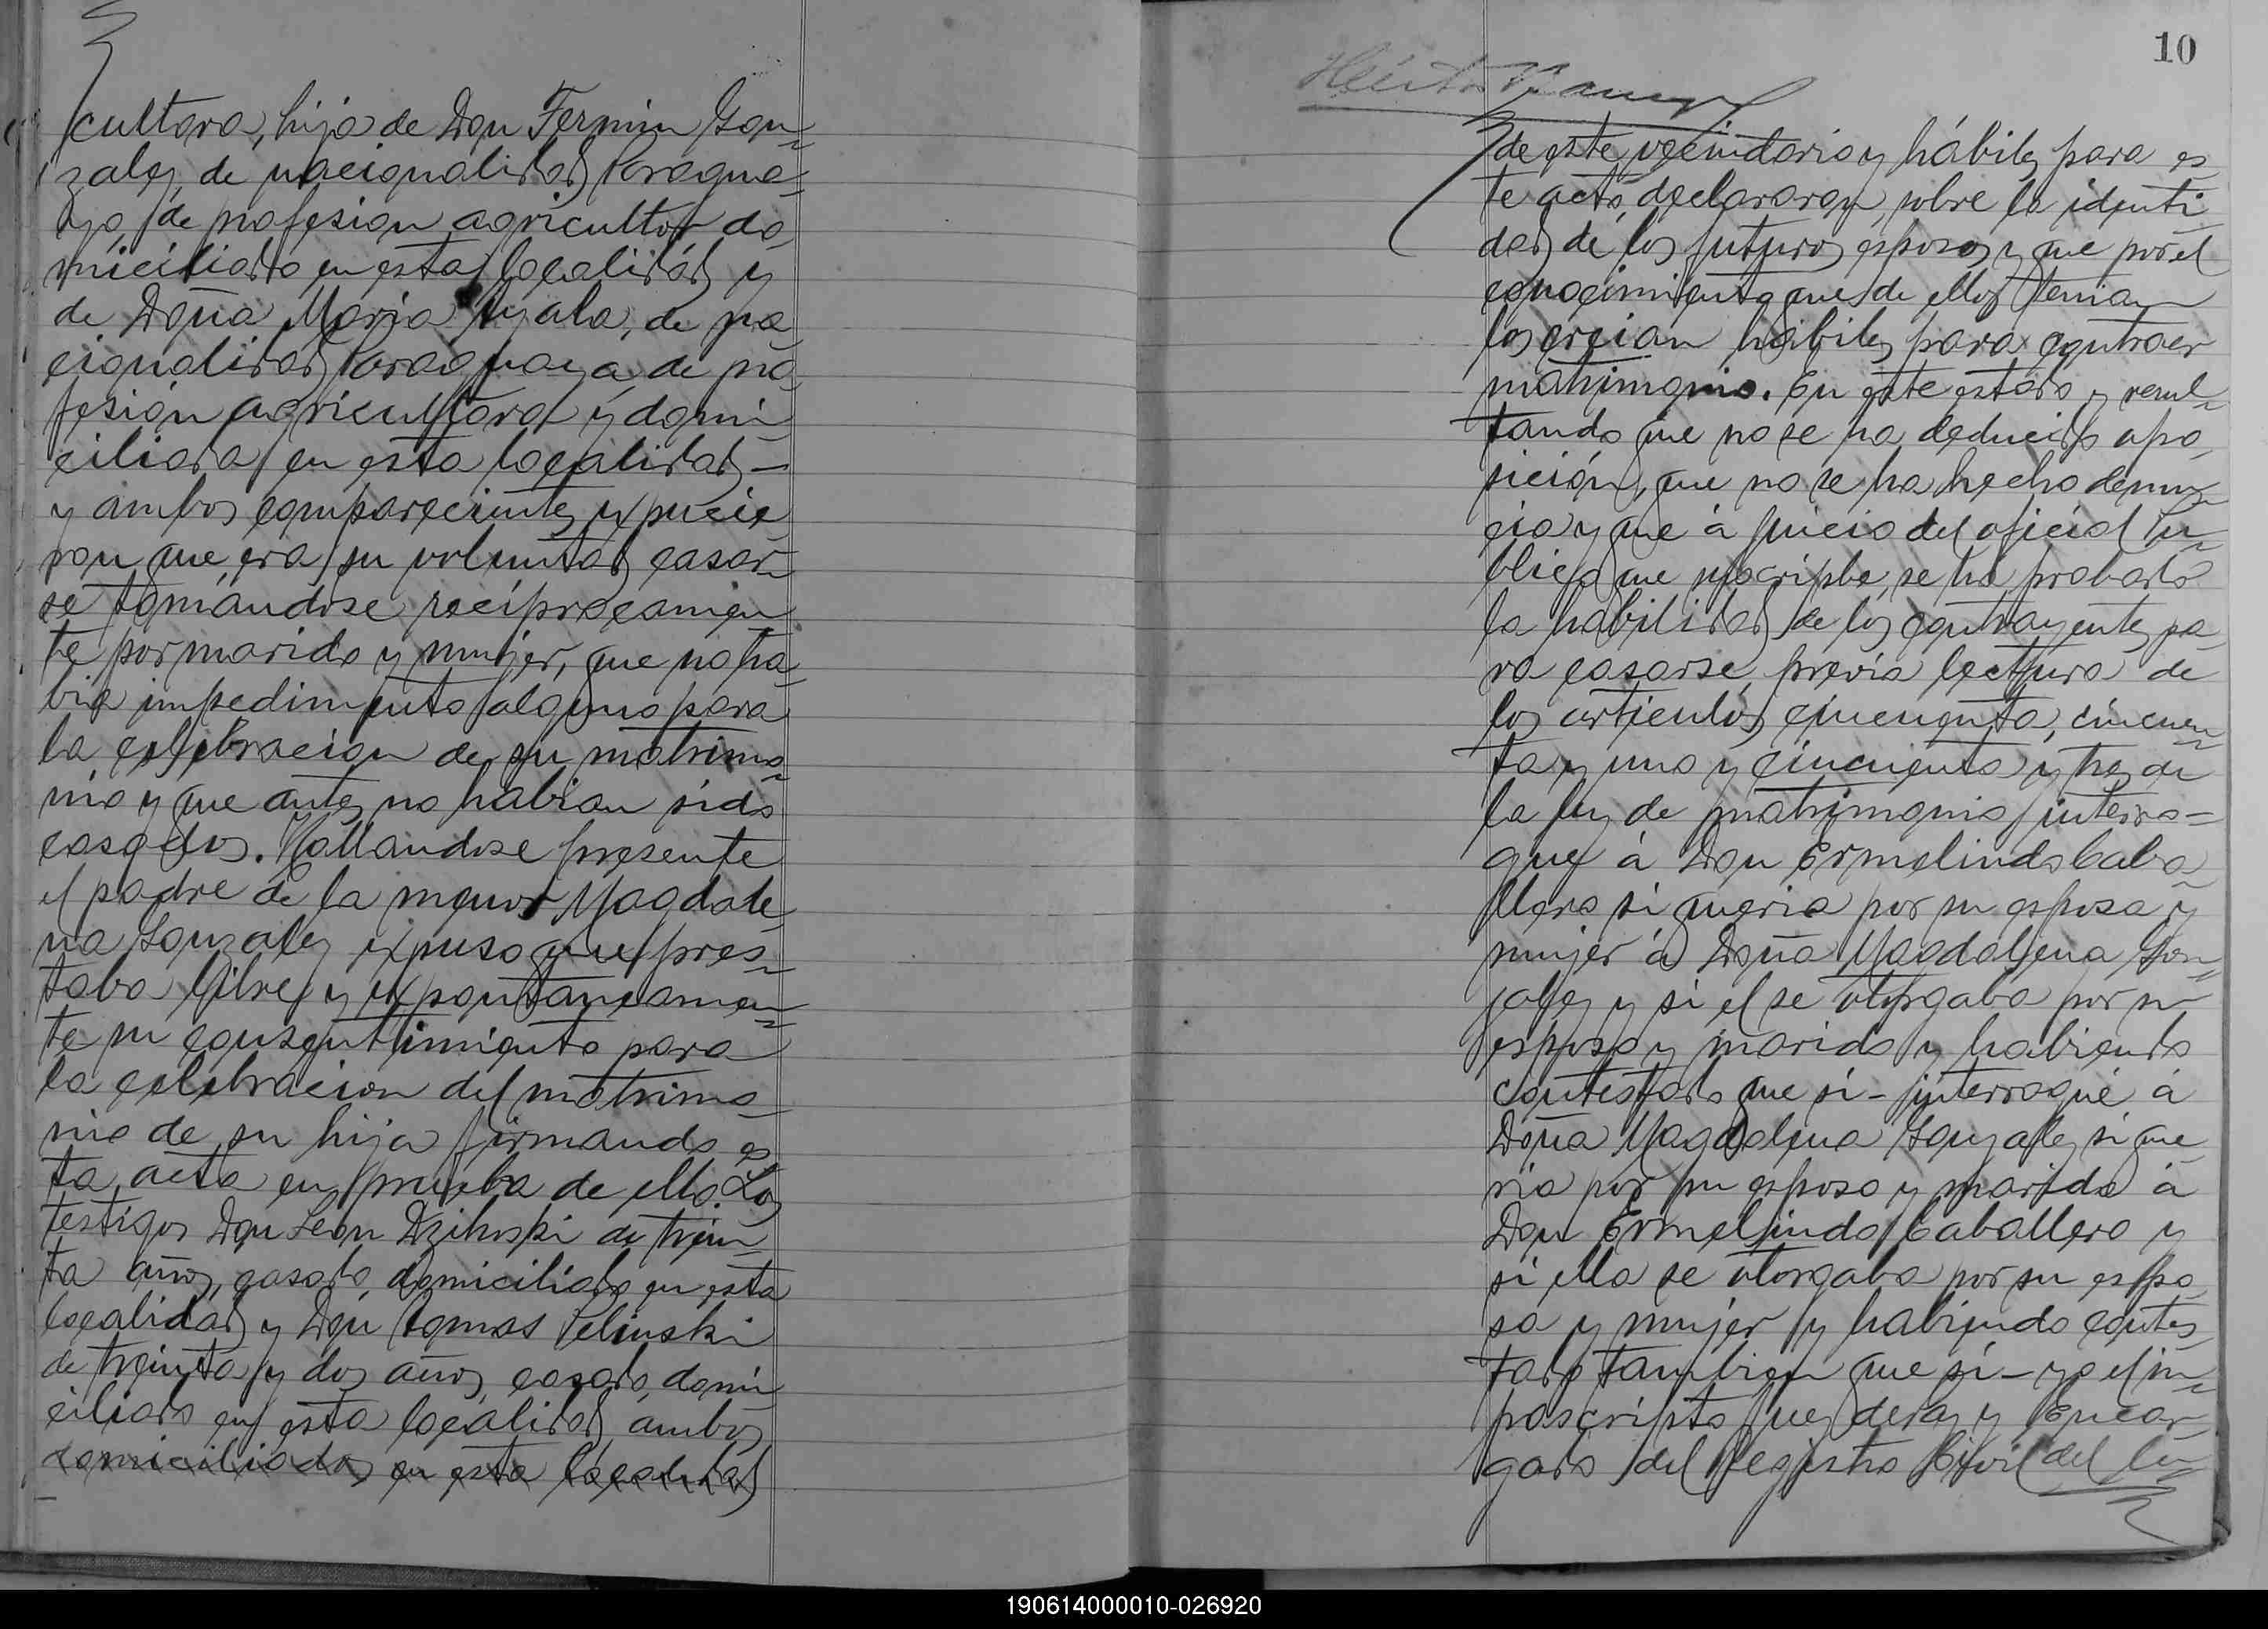 cultora, hija de Don Fermin Gon-
zalez, de nacionalidad Paragua-
ya, de profesion agricultor do-
miciliado en esta localidad y
de Doña Maria Ayala, de na-
cionalidad Paraguaya, de pro-
fesión agricultora y domi-
ciliada en esta localidad —
y ambos comparecientes expusie-
ron que era su voluntad casar-
se tomándose reciprocamen-
te por marido y mujer, que no ha-
bia impedimento alguno para
la celebracion de su matrimo-
nio y que antes no habian sido
casados. Hallandose presente
el padre de la menor Magdale-
na Gonzalez expuso que pres-
taba libre y expontaneamen-
te su consentimiento para
la celebracion del matrimo-
nio de su hija firmando es-
ta acta en prueba de ello. Los
testigos Don Leon Dzihoski de trein-
ta años, casado, domiciliado en esta
localidad y Don Tomas Pelinski
de treinta y dos años, casado, domi-
ciliado en esta localidad, ambos
domiciliados en esta localidad
10
Héctor
de este vecindario y hábiles para es-
te acto, declararon sobre la identi-
dad de los futuros esposos y que por el
conocimiento que de ellos tenian
los creian hábiles para contraer
matrimonio. En este estado y resul-
tando que no se ha deducido opo-
sición, que no se ha hecho denun-
cia y que á juicio del oficial Pú-
blico que suscribe, se ha probado
la habilidad de los contrayentes pa-
ra casarse, previa lectura de
los articulos cincuenta, cincuen-
ta y uno y cincuenta y tres de
la ley de matrimonio interro-
gue á Don Ermelindo Caba-
llero si queria por su esposa y
mujer á Doña Magdalena Gon-
zalez y si el se otorgaba por su
esposo y marido y habiendo
contestado que si - interrogué á
Doña Magdalena Gonzalez si que-
ria por su esposo y marido á
Don Ermelindo Caballero y
si ella se otorgaba por su espo-
sa y mujer y habiendo contes-
tado tambien que si - yo el in-
frascripto Juez de Paz y Encar-
gado del Registro Civil del lu-
190614000010-026920